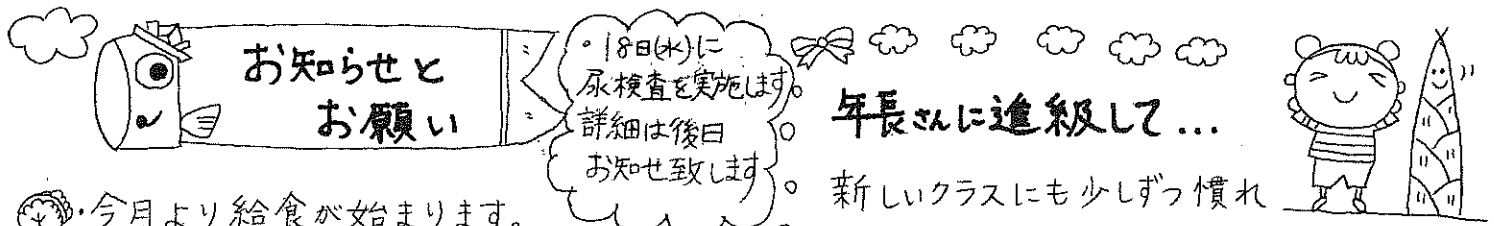 お知らせと
お願い
・18日(水)に
尿検査を実施します。
詳細は後日
お知せ致します
・今月より給食が始まります。
年長さんに進級して...
新しいクラスにも少しずつ慣れ